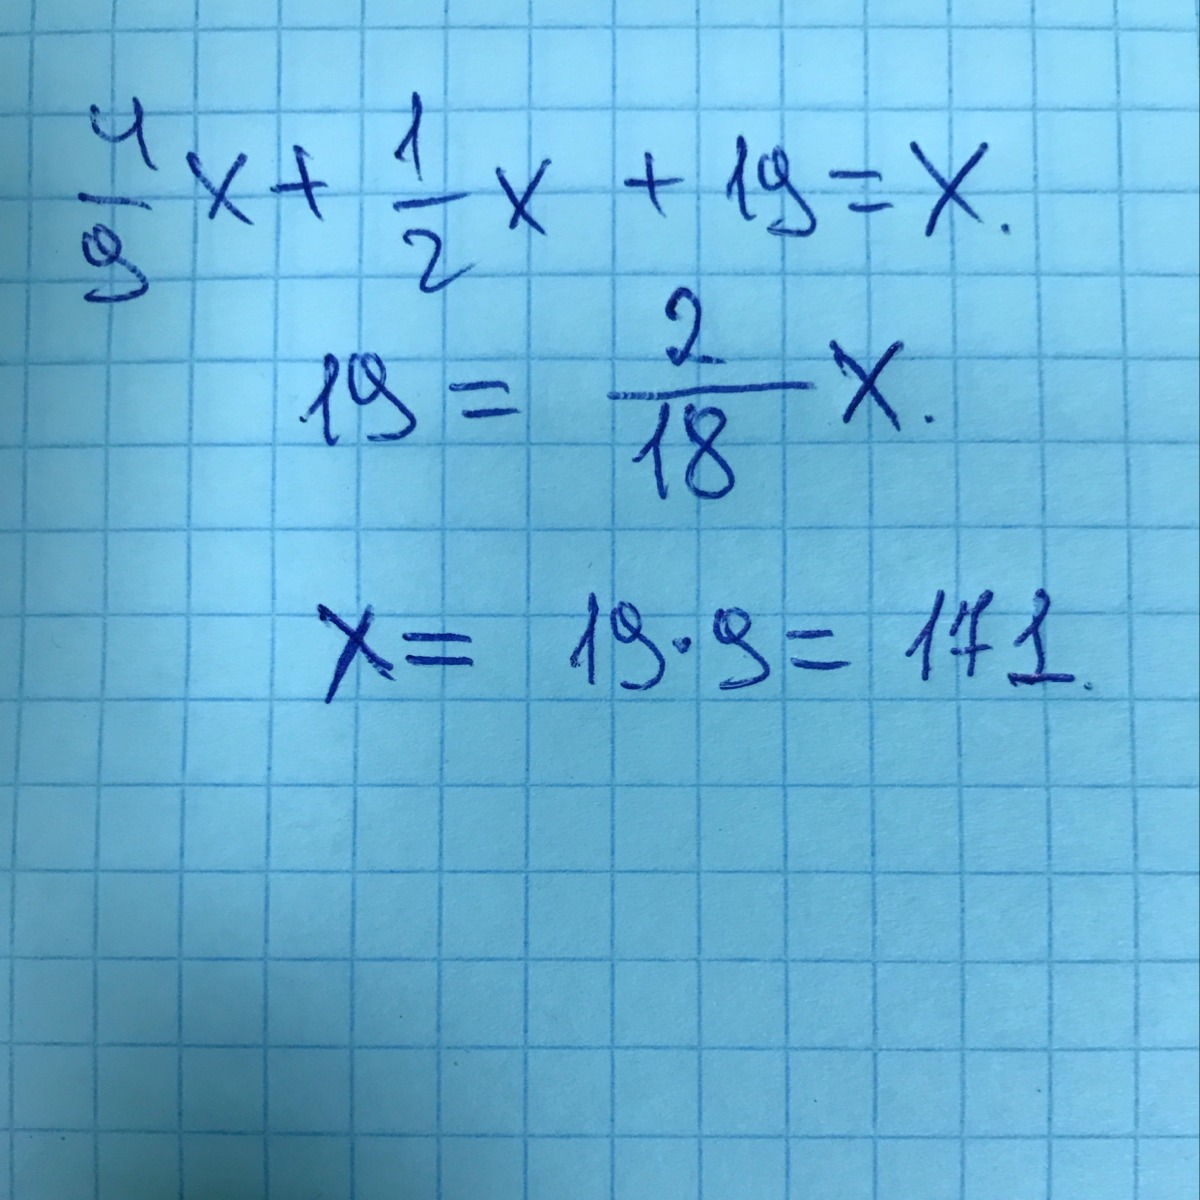 4/9 x + 1/2 x + 19 = x.
19 = 2/18 x.
x = 19 · 9 = 171.